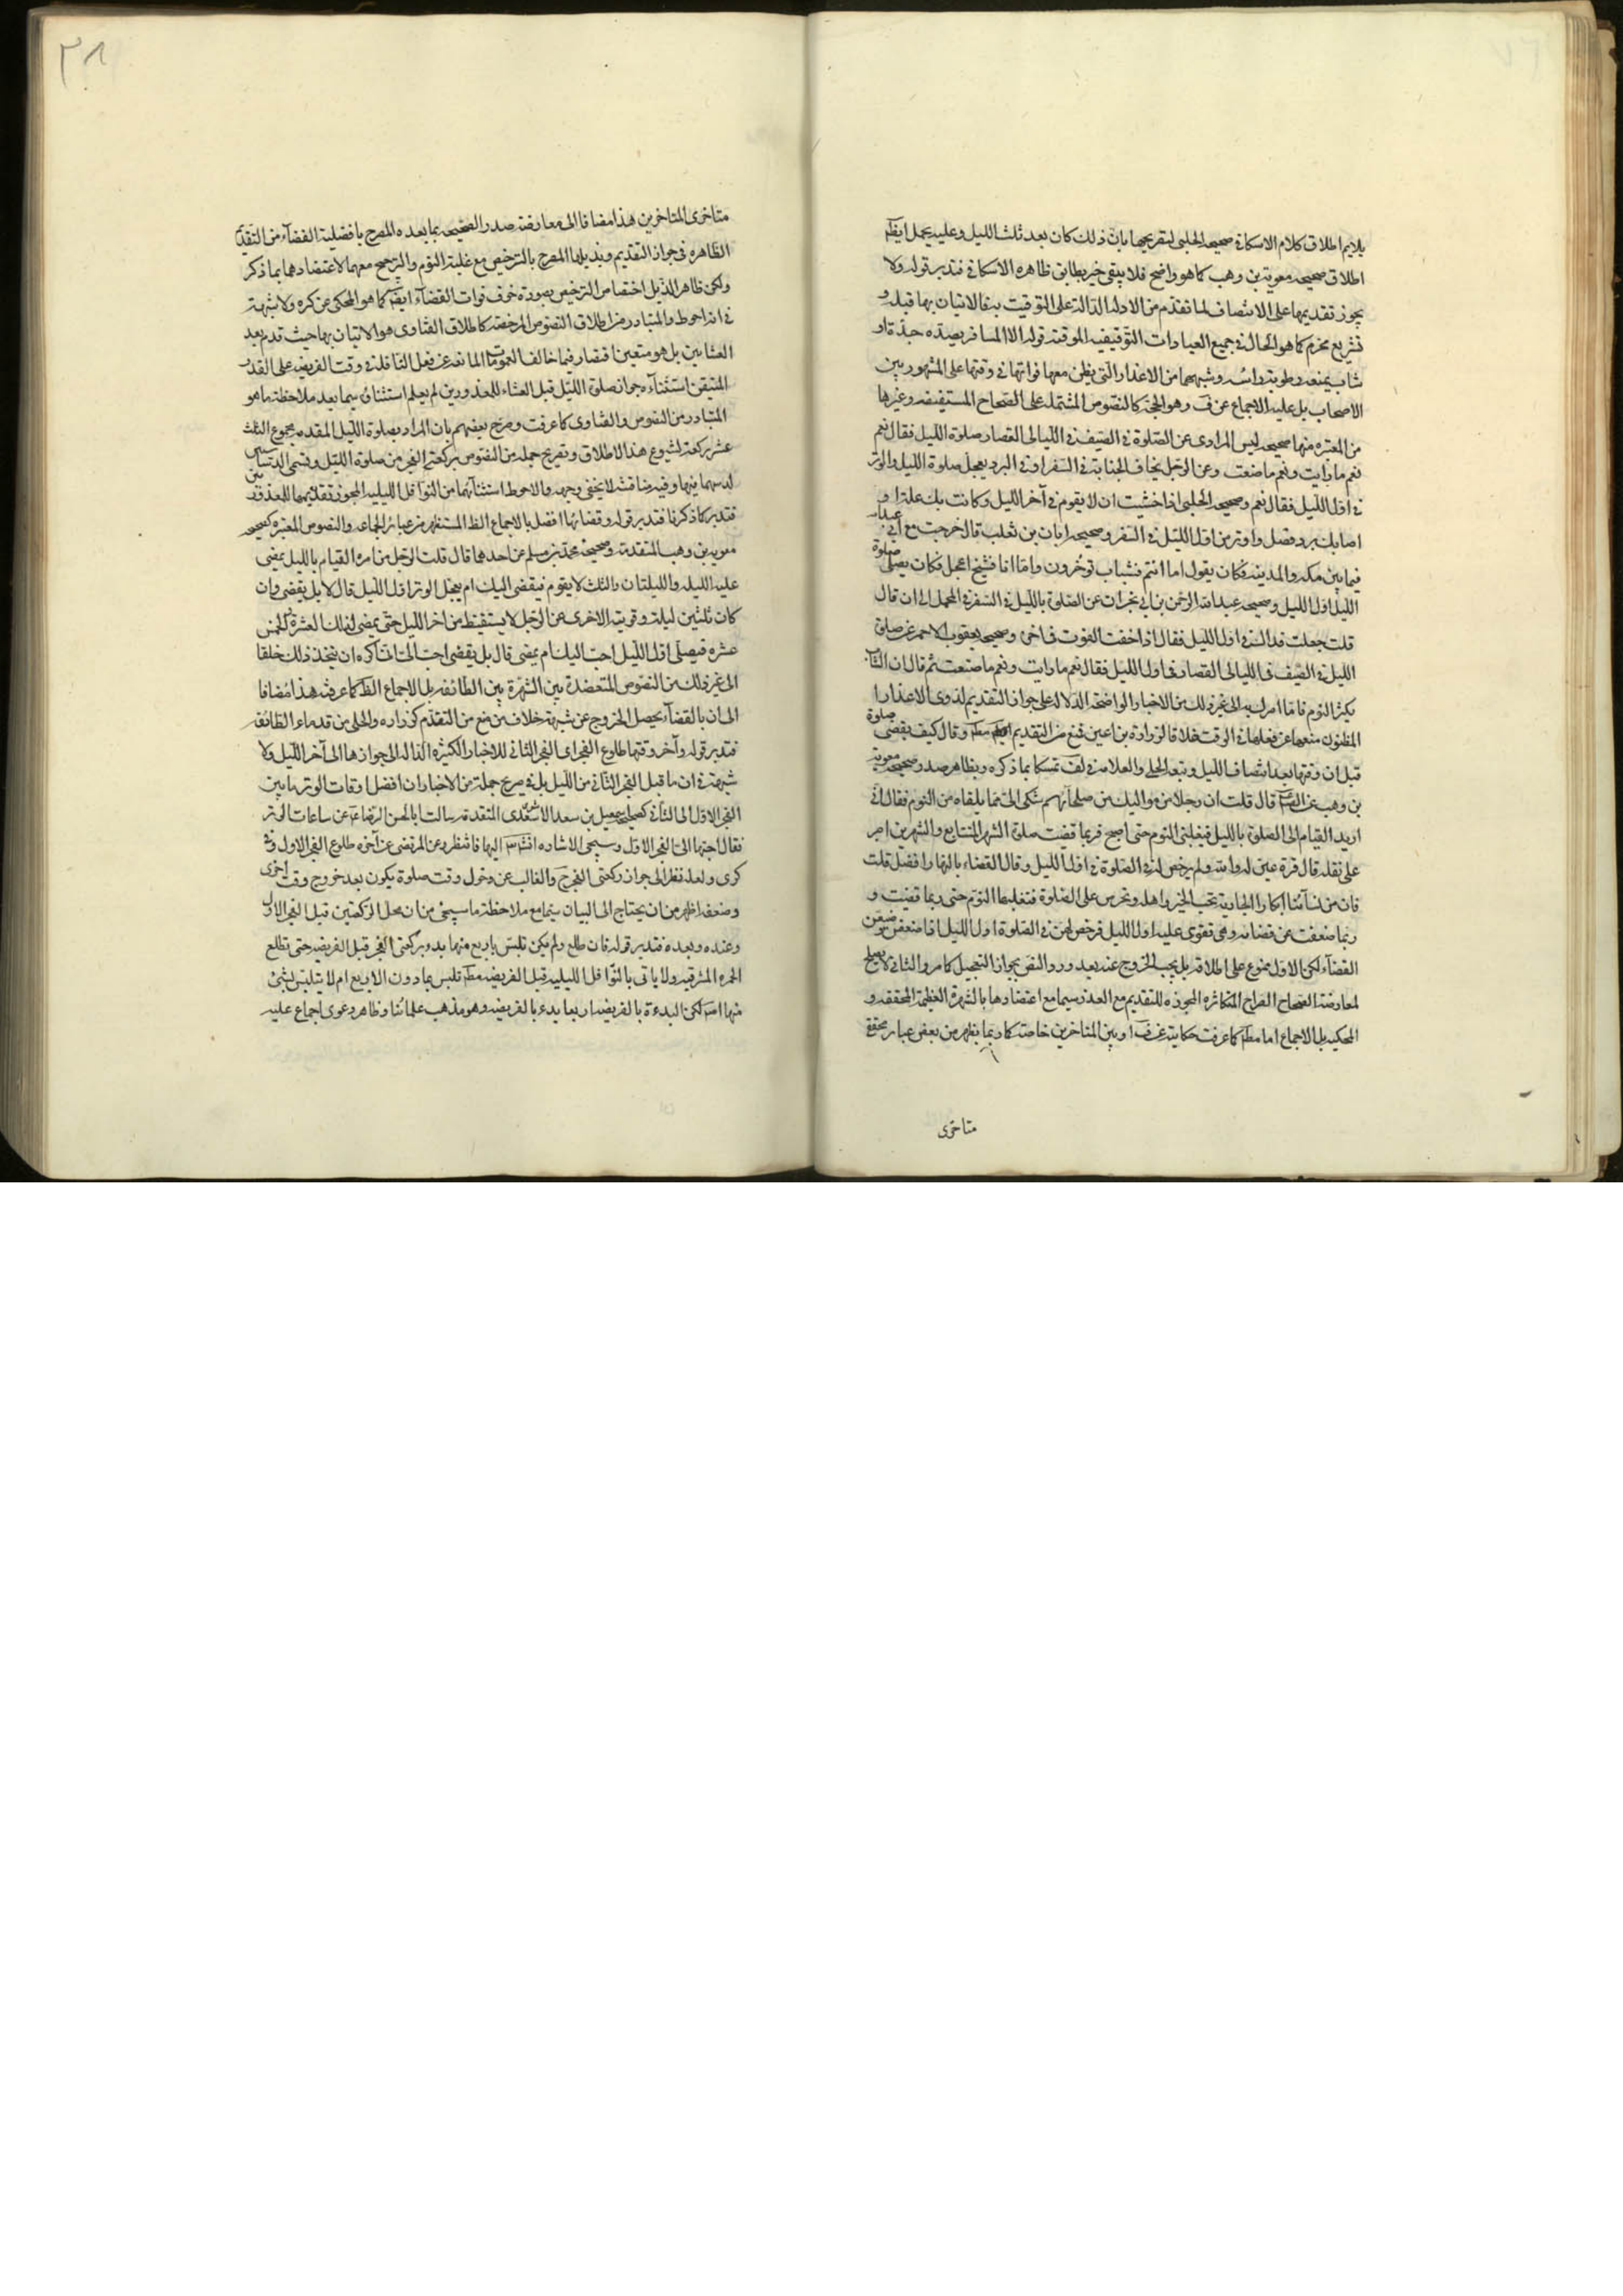 يلايم اطلاق كلام الاسكافي صحيحة الحلبي لتصريحها بان ذلك كان بعد ثلث الليل وعليه يحمل ايضا
اطلاق صحيحة معوية بن وهب كما هو واضح فلا يبقى خبر يطابق ظاهره الاسكافي فتدبر قوله ولا
يجوز تقديمها على الانتصاف لما تقدم من الادلة الدالة على التوقيت به فالاتيان بها قبله و
تشريع محرم كما هو الحال في جميع العبادات التوقيفية الموقتة قوله الا لمسافر يصده جده او
شاب يمنعه رطوبة راسه وشبههما من الاعذار التي يظن معها فواتها في وقتها على المشهور بين
الاصحاب بل عليه الاجماع عن ف وهو الحجة كالنصوص المشتملة على الصحاح المستفيضة وغيرها
من المعتبرة منها صحيحة ليس المرادي عن الصلوة في الصيف في الليالي القصار صلوة الليل فقال نعم
نعم ما رايت ونعم ما صنعت وعن الرجل يخاف الجنابة في السفر او في البرد يعجل صلوة الليل والوتر
في اول الليل فقال نعم وصحيحة الحلبي اذا خشيت ان لا يقوم في آخر الليل وكانت بك علة او
اصابك برد فصل واوتر من اول الليل في السفر وصحيحة ابان بن تغلب قال خرجت مع ابي عبدالله
فيما بين مكة والمدينة فكان يقول اما انتم فشباب توخرون واما انا فشيخ اعجل فكان يصلي صلوة
الليل اول الليل وصحيحة عبد الرحمن بن ابي نجران عن الصلوة بالليل في السفر في المحمل الى ان قال
قلت جعلت فداك في اول الليل فقال اذا خفت الفوت في اخره وصحيحة يعقوب الاحمر عن صلوة
الليل في الصيف في الليالي القصار في اول الليل فقال نعم ما رايت ونعم ما صنعت ثم قال ان الشاب
يكثر النوم فانا امرك به الى غير ذلك من الاخبار الواضحة الدلالة على جواز التقديم لذوي الاعذار
المظنون منعها عن فعلها في الوقت خلافا لزرارة بن اعين فمنع من التقديم مطلقا وقال كيف يقضي صلوة
قبل ان وقتها بعد انتصاف الليل وتبعه الحلي والعلامة في لف تمسكا بما ذكره وبظاهر صدر صحيحة معوية
بن وهب عن الصادق قال قلت ان رجلا من مواليك من صلحائهم شكى الي ما يلقاه من النوم فقال اني
اريد القيام الى الصلوة بالليل فيغلبني النوم حتى اصبح فربما قضيت صلوة الشهر المتتابع والشهرين اصبر
على ثقله قال قرة عين له والله ولم يرخص له في الصلوة في اول الليل وقال القضاء بالنهار افضل قلت
فان من نسائنا ابكارا الجارية تحب الخير واهله وتحرص على الصلوة فتغلبها النوم حتى ربما قضيت و
ربما ضعفت عن قضائه وهي تقوى عليه اول الليل فرخص لهن في الصلوة اول الليل اذا ضعفن وضيعن
القضآء لكن الاول ممنوع على اطلاقه بل يجب الخروج عنه بعد ورود النص بجواز التعجيل كما مر والثاني لا يصلح
لمعارضة الصحاح الصراح المتكاثرة المجوزة للتقديم مع العذر سيما مع اعتضادها بالشهرة العظيمة المحققة و
المحكية بل الاجماع اما مطلقا كما عرفت حكايته عن ف او بين المتاخرين خاصة كما ربما يظهر من بعض عبار محقق
متاخري
٣١
متاخري المتاخرين هذا مضافا الى معارضة صدر الصحيحة بما بعده المصرح بافضلية القضآء من التقديم
الظاهرة في جواز التقديم وبذيلها المصرح بالترخيص مع غلبة النوم والترجيح معهما لاعتضادهما بما ذكر
ولكن ظاهر الذيل اختصاص الترخيص بصورة خوف فوات القضآء ايضا كما هو المحكي عن كره ولا شبهة
في انه احوط والمتبادر من اطلاق النصوص المرخصة كاطلاق الفتاوى هو الاتيان بها حيث قدم بعد
العشايين بل هو متعين اقتصار فيما خالف العمومات المانعة عن فعل النافلة في وقت الفريضة على القدر
المتيقن استثنآءه جواز صلوة الليل قبل العشاء للمعذورين لم يعلم استثناؤه سيما بعد ملاحظة ما هو
المتبادر من النصوص والفتاوى كما عرفت وصرح بعضهم بان المراد بصلوة الليل المقدمة مجموع الثلث
عشر ركعة لشيوع هذا الاطلاق وتصريح جملة من النصوص بركعتي الفجر من صلوة الليل وتسمى الدساستين
لدسهما فيها وفيه مناقشة لا يخفى وجهه والاحوط استثنائهما من النوافل الليلية المجوز تقديمها للعذر
فتدبر كما ذكرنا فتدبر قوله وقضائها افضل بالاجماع الظ المستظهر من عبائر الجماعة والنصوص المعتبرة كصحيحة
معوية بن وهب المتقدمة وصحيحة محمد بن مسلم عن احدهما قال قلت الرجل من امره القيام بالليل يمضي
عليه الليلة والليلتان والثلث لا يقوم فيقضي اليك ام يعجل الوتر اول الليل قال لا بل يقضي وان
كان ثلثين ليلة وقويته الاخرى عن الرجل لا يستيقظ من اخر الليل حتى يمضي لذلك العشر والخمس
عشره فيصلي اول الليل احب اليك ام يقضي قال بل يقضي احب الي اني اكره ان يتخذ ذلك خلقا
الى غير ذلك من النصوص المتعضدة بين الشهرة بين الطائفة بل الاجماع الظ كما عرفت هذا مضافا
الى ان بالقضآء يحصل الخروج عن شبهة خلاف من منع من التقدم كزراره والحلي من قدماء الطائفة
فتدبر قوله وآخر وقتها طلوع الفجر اى الفجر الثاني للاخبار الكثيرة الدالة الى جوازها الى آخر الليل ولا
شبهة في ان ما قبل الفجر الثاني من الليل بل في صريح جملة من الاخبار ان افضل اوقات الوتر ما بين
الفجر الاول الى الثاني كصحيحة اسمعيل بن سعد الاشعري المتقدمة سالت ابا الحسن الرضا ع عن ساعات الوتر
فقال احبها الى الفجر الاول وسيجئ الاشاره انشاء الله اليها فانتظر وعن المرتضى عن آخره طلوع الفجر الاول وفي
كرى ولعله نظر الى جواز ركعتي الفجر ح والغالب عن دخول وقت صلوة يكون بعد خروج وقت اخرى
وضعفه اظهر من ان يحتاج الى البيان سيما مع ملاحظة ما سيجئ من ان محل الركعتين قبل الفجر الاول
وعنده وبعده فتدبر قوله فان طلع ولم يكن تلبس باربع منها بدء بركعتي الفجر قبل الفريضة حتى تطلع
الحمره المشرقية ولا ياتى بالنوافل الليلية قبل الفريضة مطلقا تلبس بما دون الاربع ام لا يتلبس بشئ
منها اصلا لكن البدءة بالفريضة اربعا يدء بالفريضة وهو مذهب علمائنا وظاهره دعوى اجماع عليه